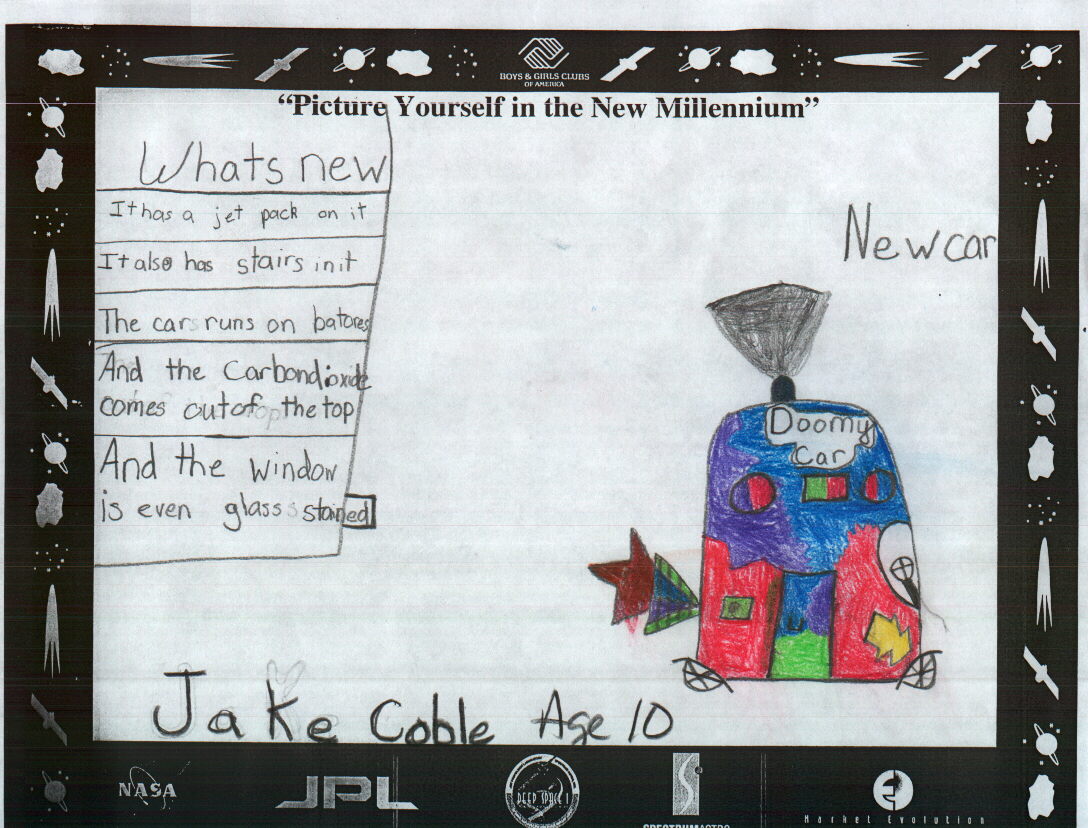 BOYS & GIRLS CLUBS
OF AMERICA
“Picture Yourself in the New Millennium”
Whats new
It has a jet pack on it
It also has stairs in it
The cars runs on batores
And the Carbondioxide
comes out of the top
And the window
is even glass stained
New car
Doomy
Car
Jake Coble Age 10
NASA
JPL
DEEP SPACE 1
SPECTRUMASTRO
Market Evolution